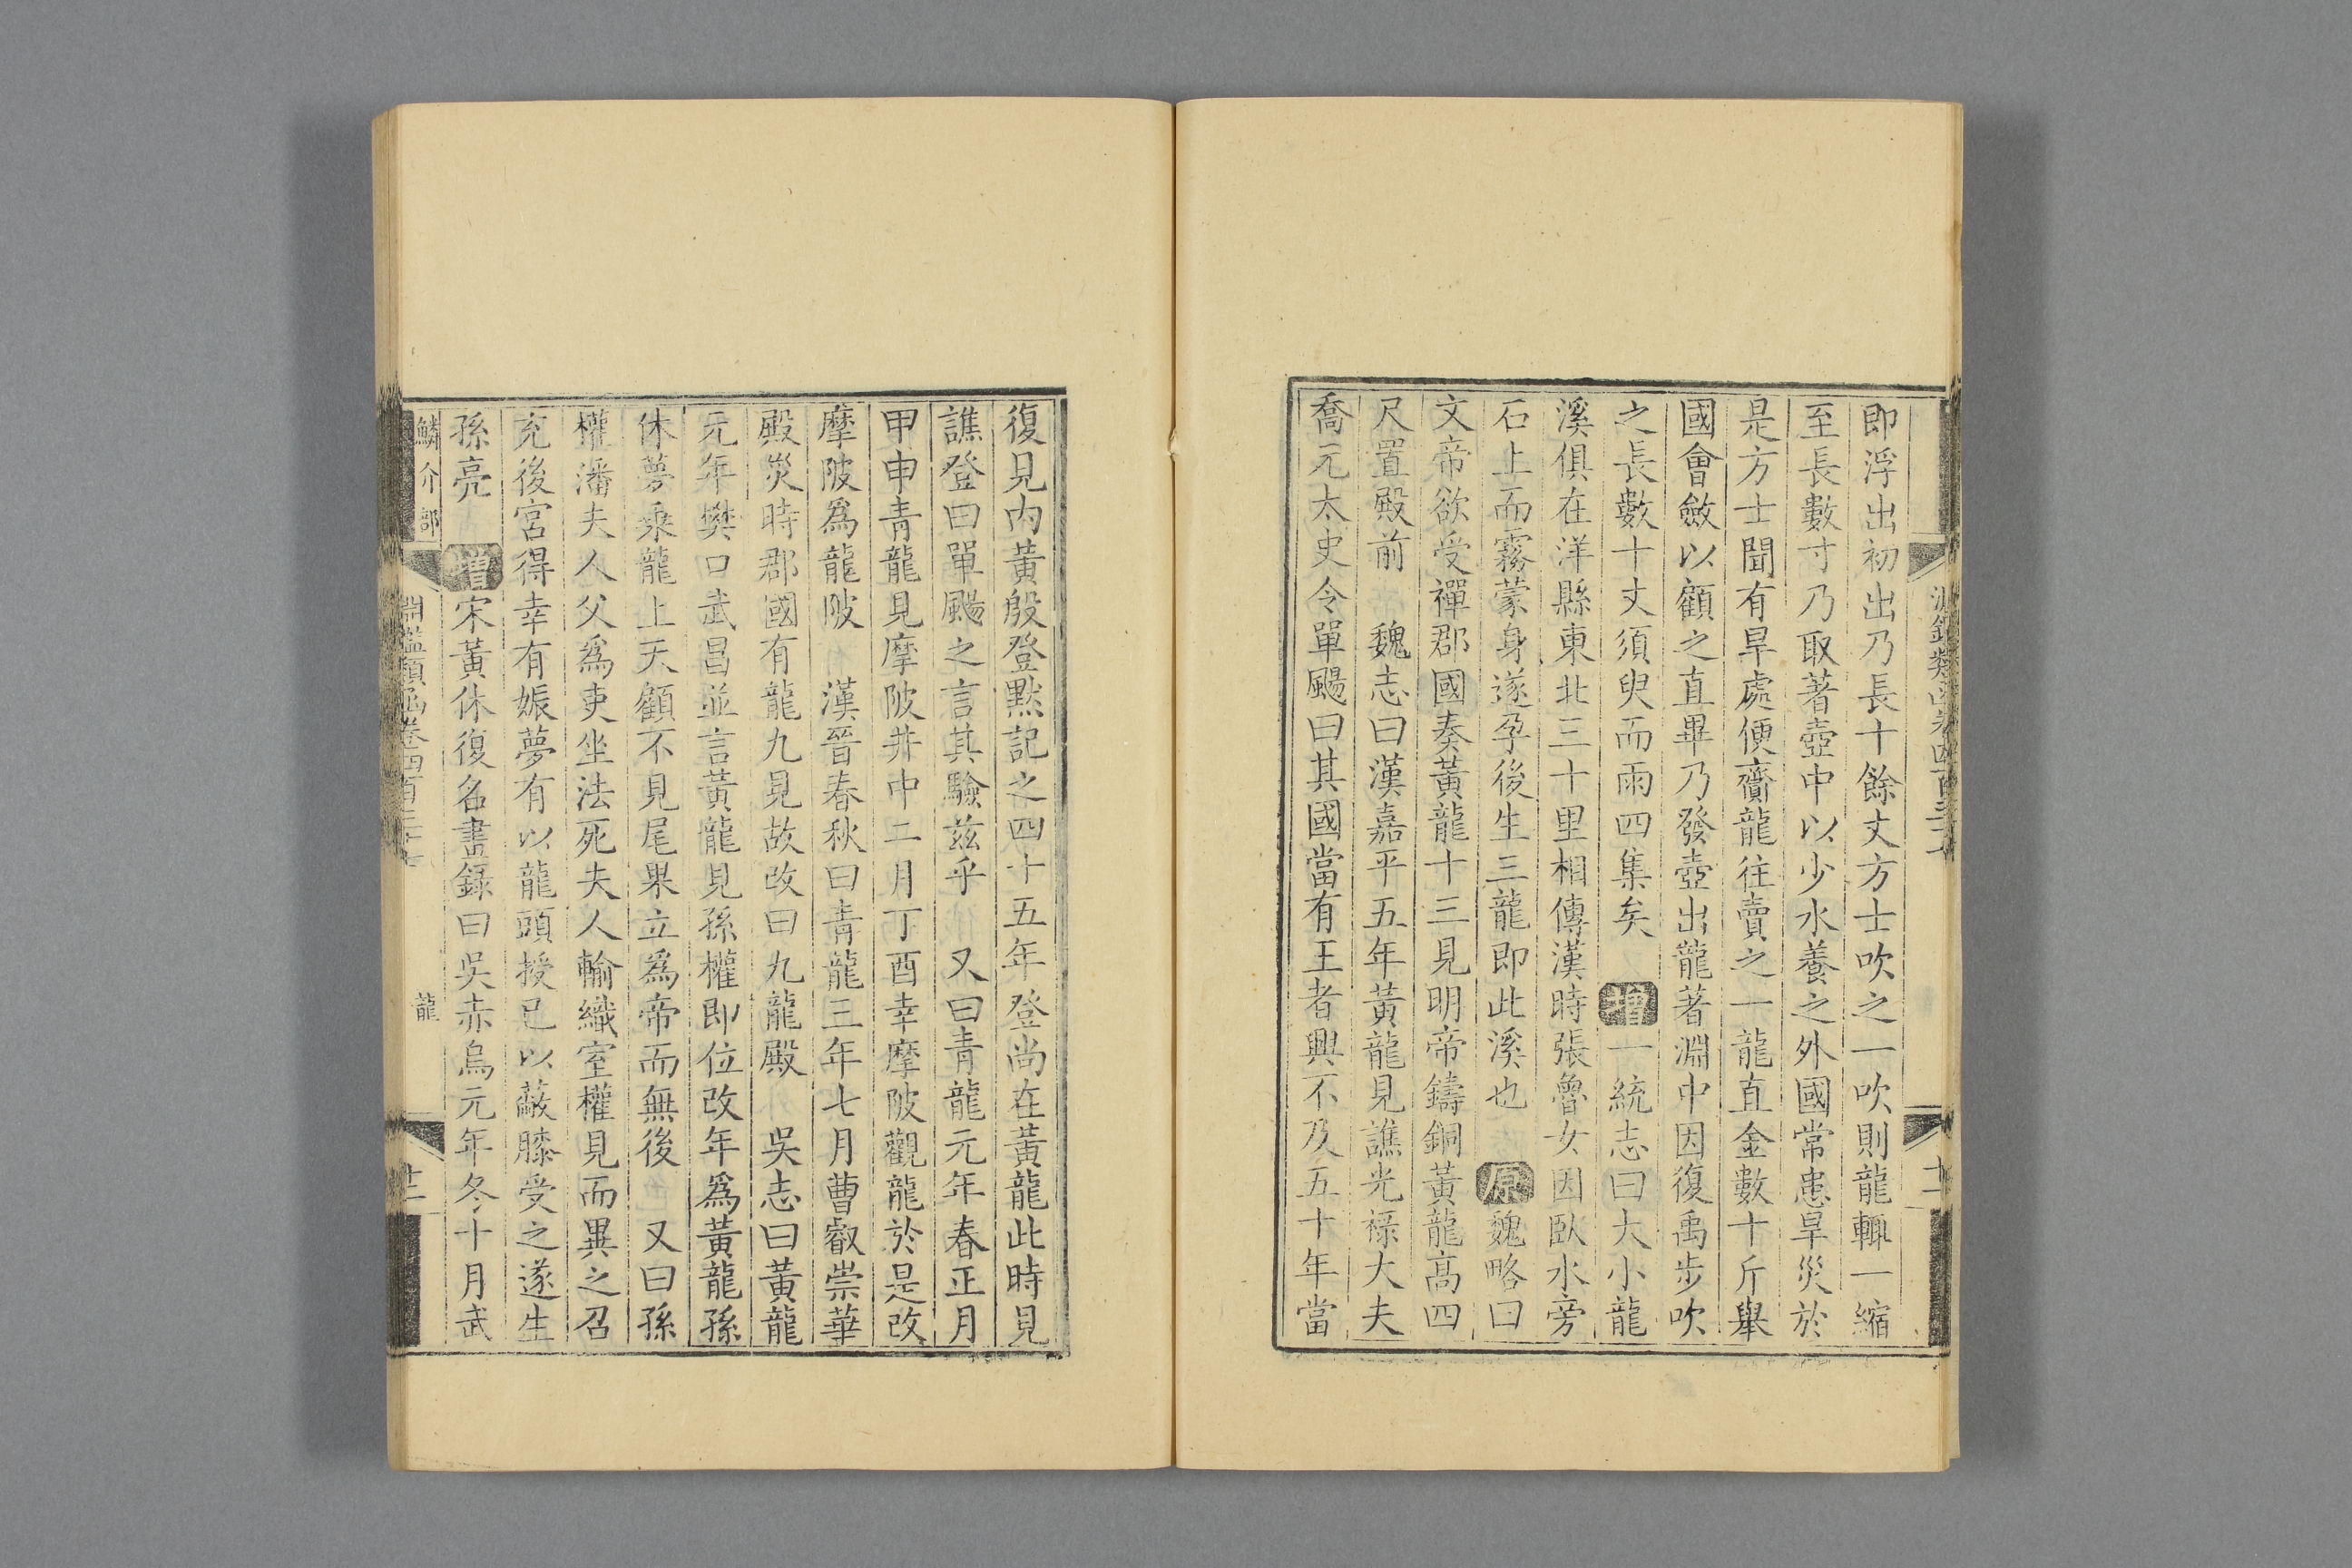 即浮出初出乃長十餘丈方士吹之一吹則龍輙一縮
至長數寸乃取著壺中以少水養之外國常患旱災於
是方士聞有旱處便齎龍往賣之一龍直金數十斤舉
國會斂以顧之直畢乃發壺出龍著淵中因復禹步吹
之長數十丈須臾而雨四集矣 增一統志曰大小龍
溪俱在洋縣東北三十里相傳漢時張魯女因臥水旁
石上而霧蒙身遂孕後生三龍即此溪也 原魏略曰
文帝欲受禪郡國奏黃龍十三見明帝鑄銅黃龍高四
尺置殿前 魏志曰漢嘉平五年黃龍見譙光祿大夫
喬元太史令單颺曰其國當有王者興不及五十年當
復見內黃殷登默記之四十五年登尚在黃龍此時見
譙登曰單颺之言其驗茲乎 又曰青龍元年春正月
甲申青龍見摩陂井中二月丁酉幸摩陂觀龍於是改
摩陂爲龍陂 漢晉春秋曰青龍三年七月曹叡崇華
殿災時郡國有龍九見故改曰九龍殿 吳志曰黃龍
元年樊口武昌並言黃龍見孫權即位改年爲黃龍孫
休夢乘龍上天顧不見尾果立爲帝而無後 又曰孫
權潘夫人父爲吏坐法死夫人輸織室權見而異之召
充後宮得幸有娠夢有以龍頭授已以蔽膝受之遂生
孫亮 增宋黃休復名畫錄曰吳赤烏元年冬十月武
鱗介部
淵鑑類函卷四百三十七
龍
十二